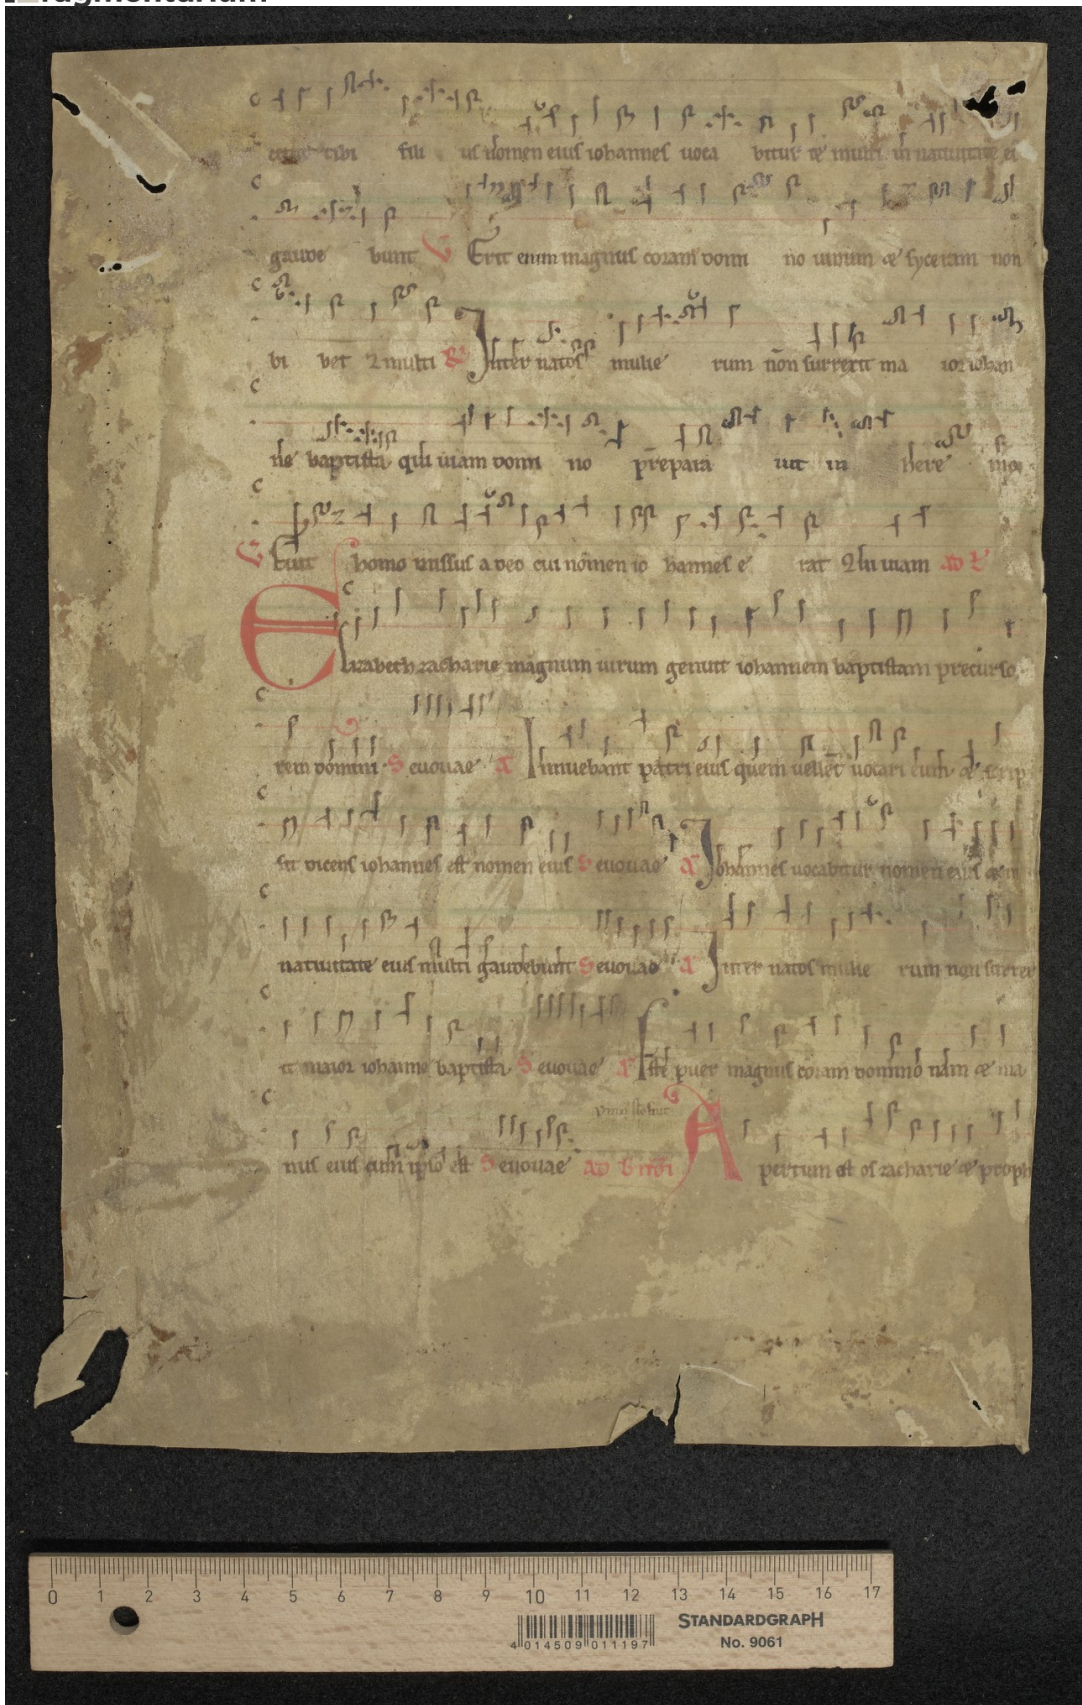 ragmentarium
tibi fili us nomen eius iohannes uoca bitur & multi in natiuitate ei
gaude bunt V Erit enim magnus coram domi no uinum & syceram non
bi bet 2 multi R Inter natos mulie rum non surrexit ma ior iohan
ne baptista qui uiam domi no prepara uit in here mo
V Fuit homo missus a deo cui nomen io hannes e rat 2 In uiam
Elizabeth zacharie magnum uirum genuit iohannem baptistam precurso
rem domini S euouae A Innuebant patri eius quem uellet uocari eum & scrip
sit dicens iohannes est nomen eius S euouae A Iohannes uocabitur nomen eius & in
natiuitate eius multi gaudebunt S euouae A Inter natos mulie rum non surrex
it maior iohanne baptista S euouae A Iste puer magnus coram domino nam & ma
nus eius cum ipso est S euouae Apertum est os zacharie & proph
0 1 2 3 4 5 6 7 8 9 10 11 12 13 14 15 16 17
STANDARDGRAPH
No. 9061
4 014509 011197